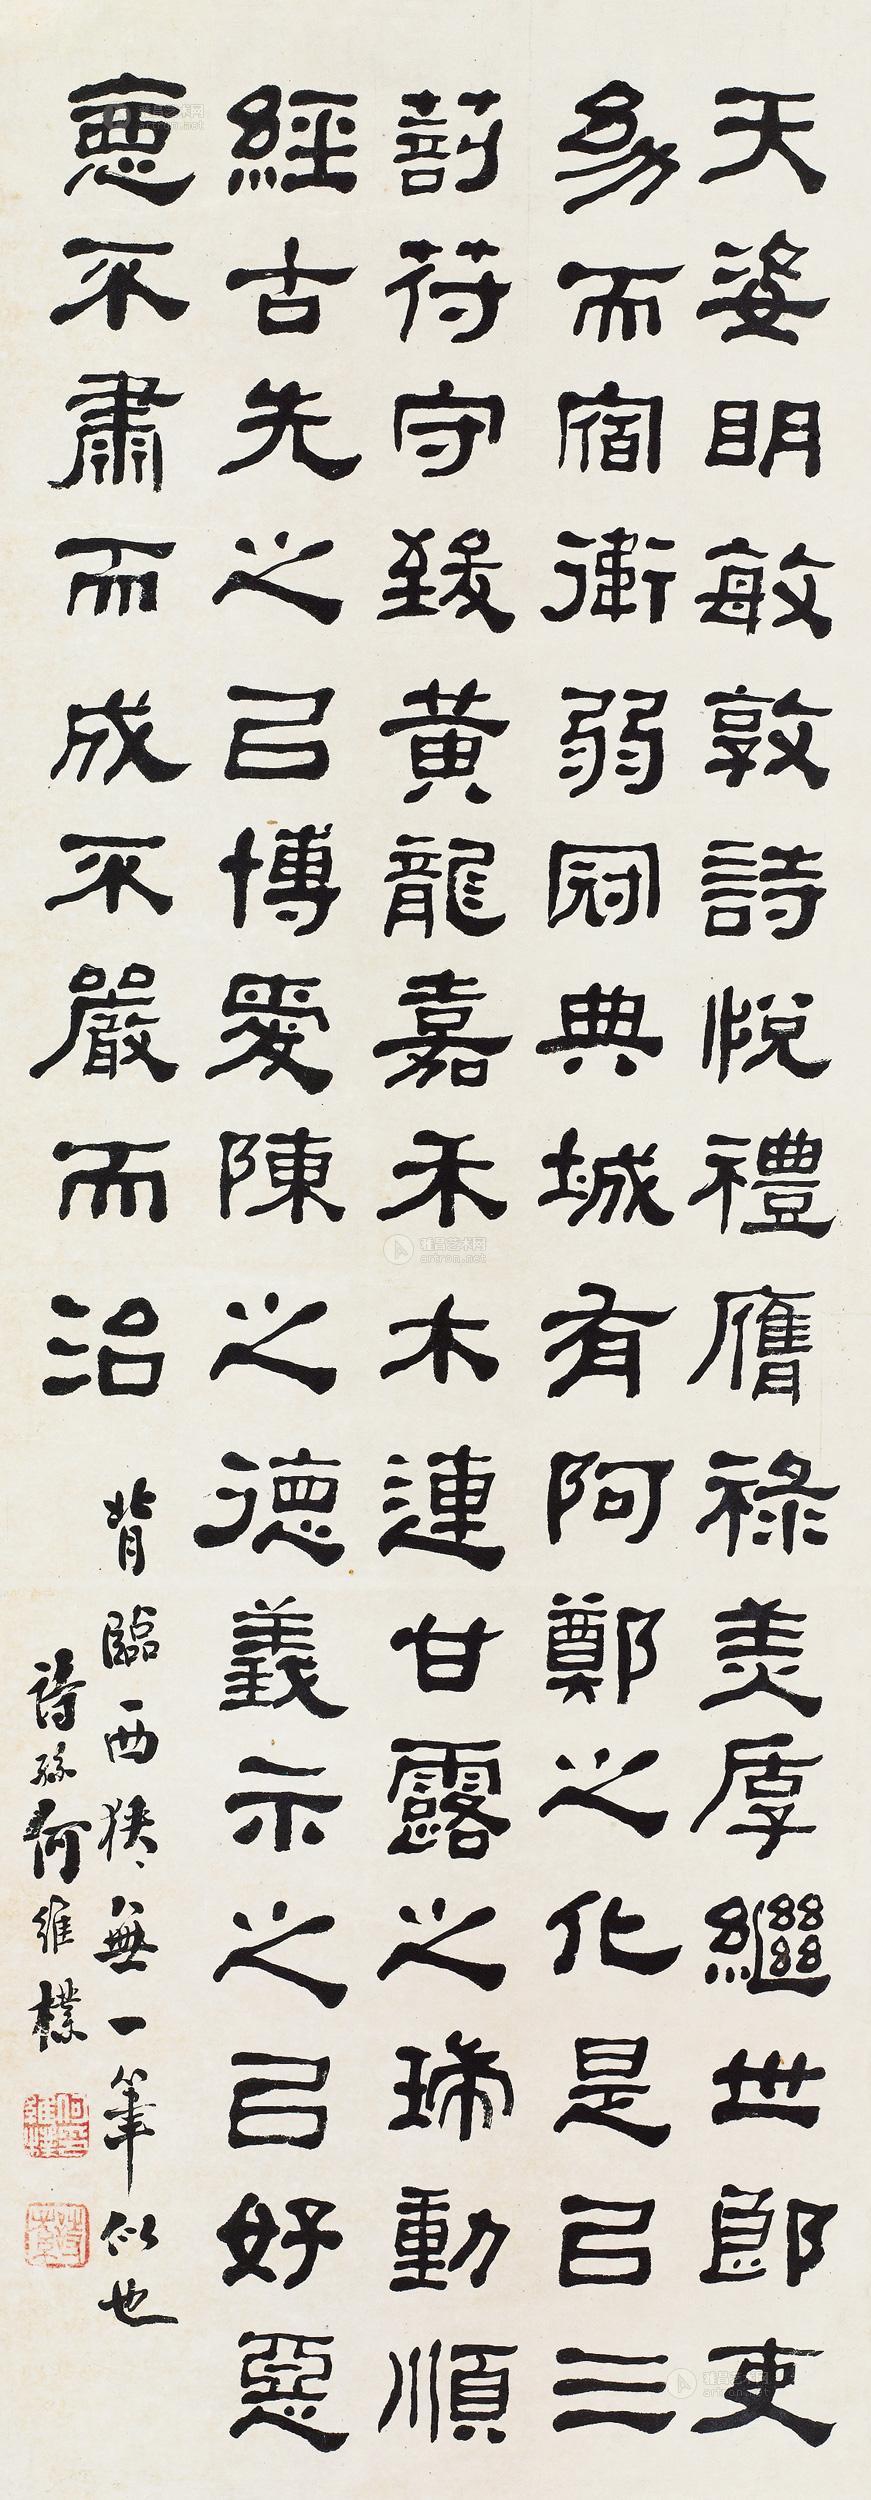 天姿明敏敦詩悅禮膺祿美厚繼世郎吏
幼而宿衛弱冠典城有阿鄭之化是以三
剖苻守致黃龍嘉禾木連甘露之瑞動順
經古先之以博愛陳之德義示之以好惡
不肅而成不嚴而治
背臨西狹無一筆似也
詩孫何維樸
雅昌艺术网
artron.net